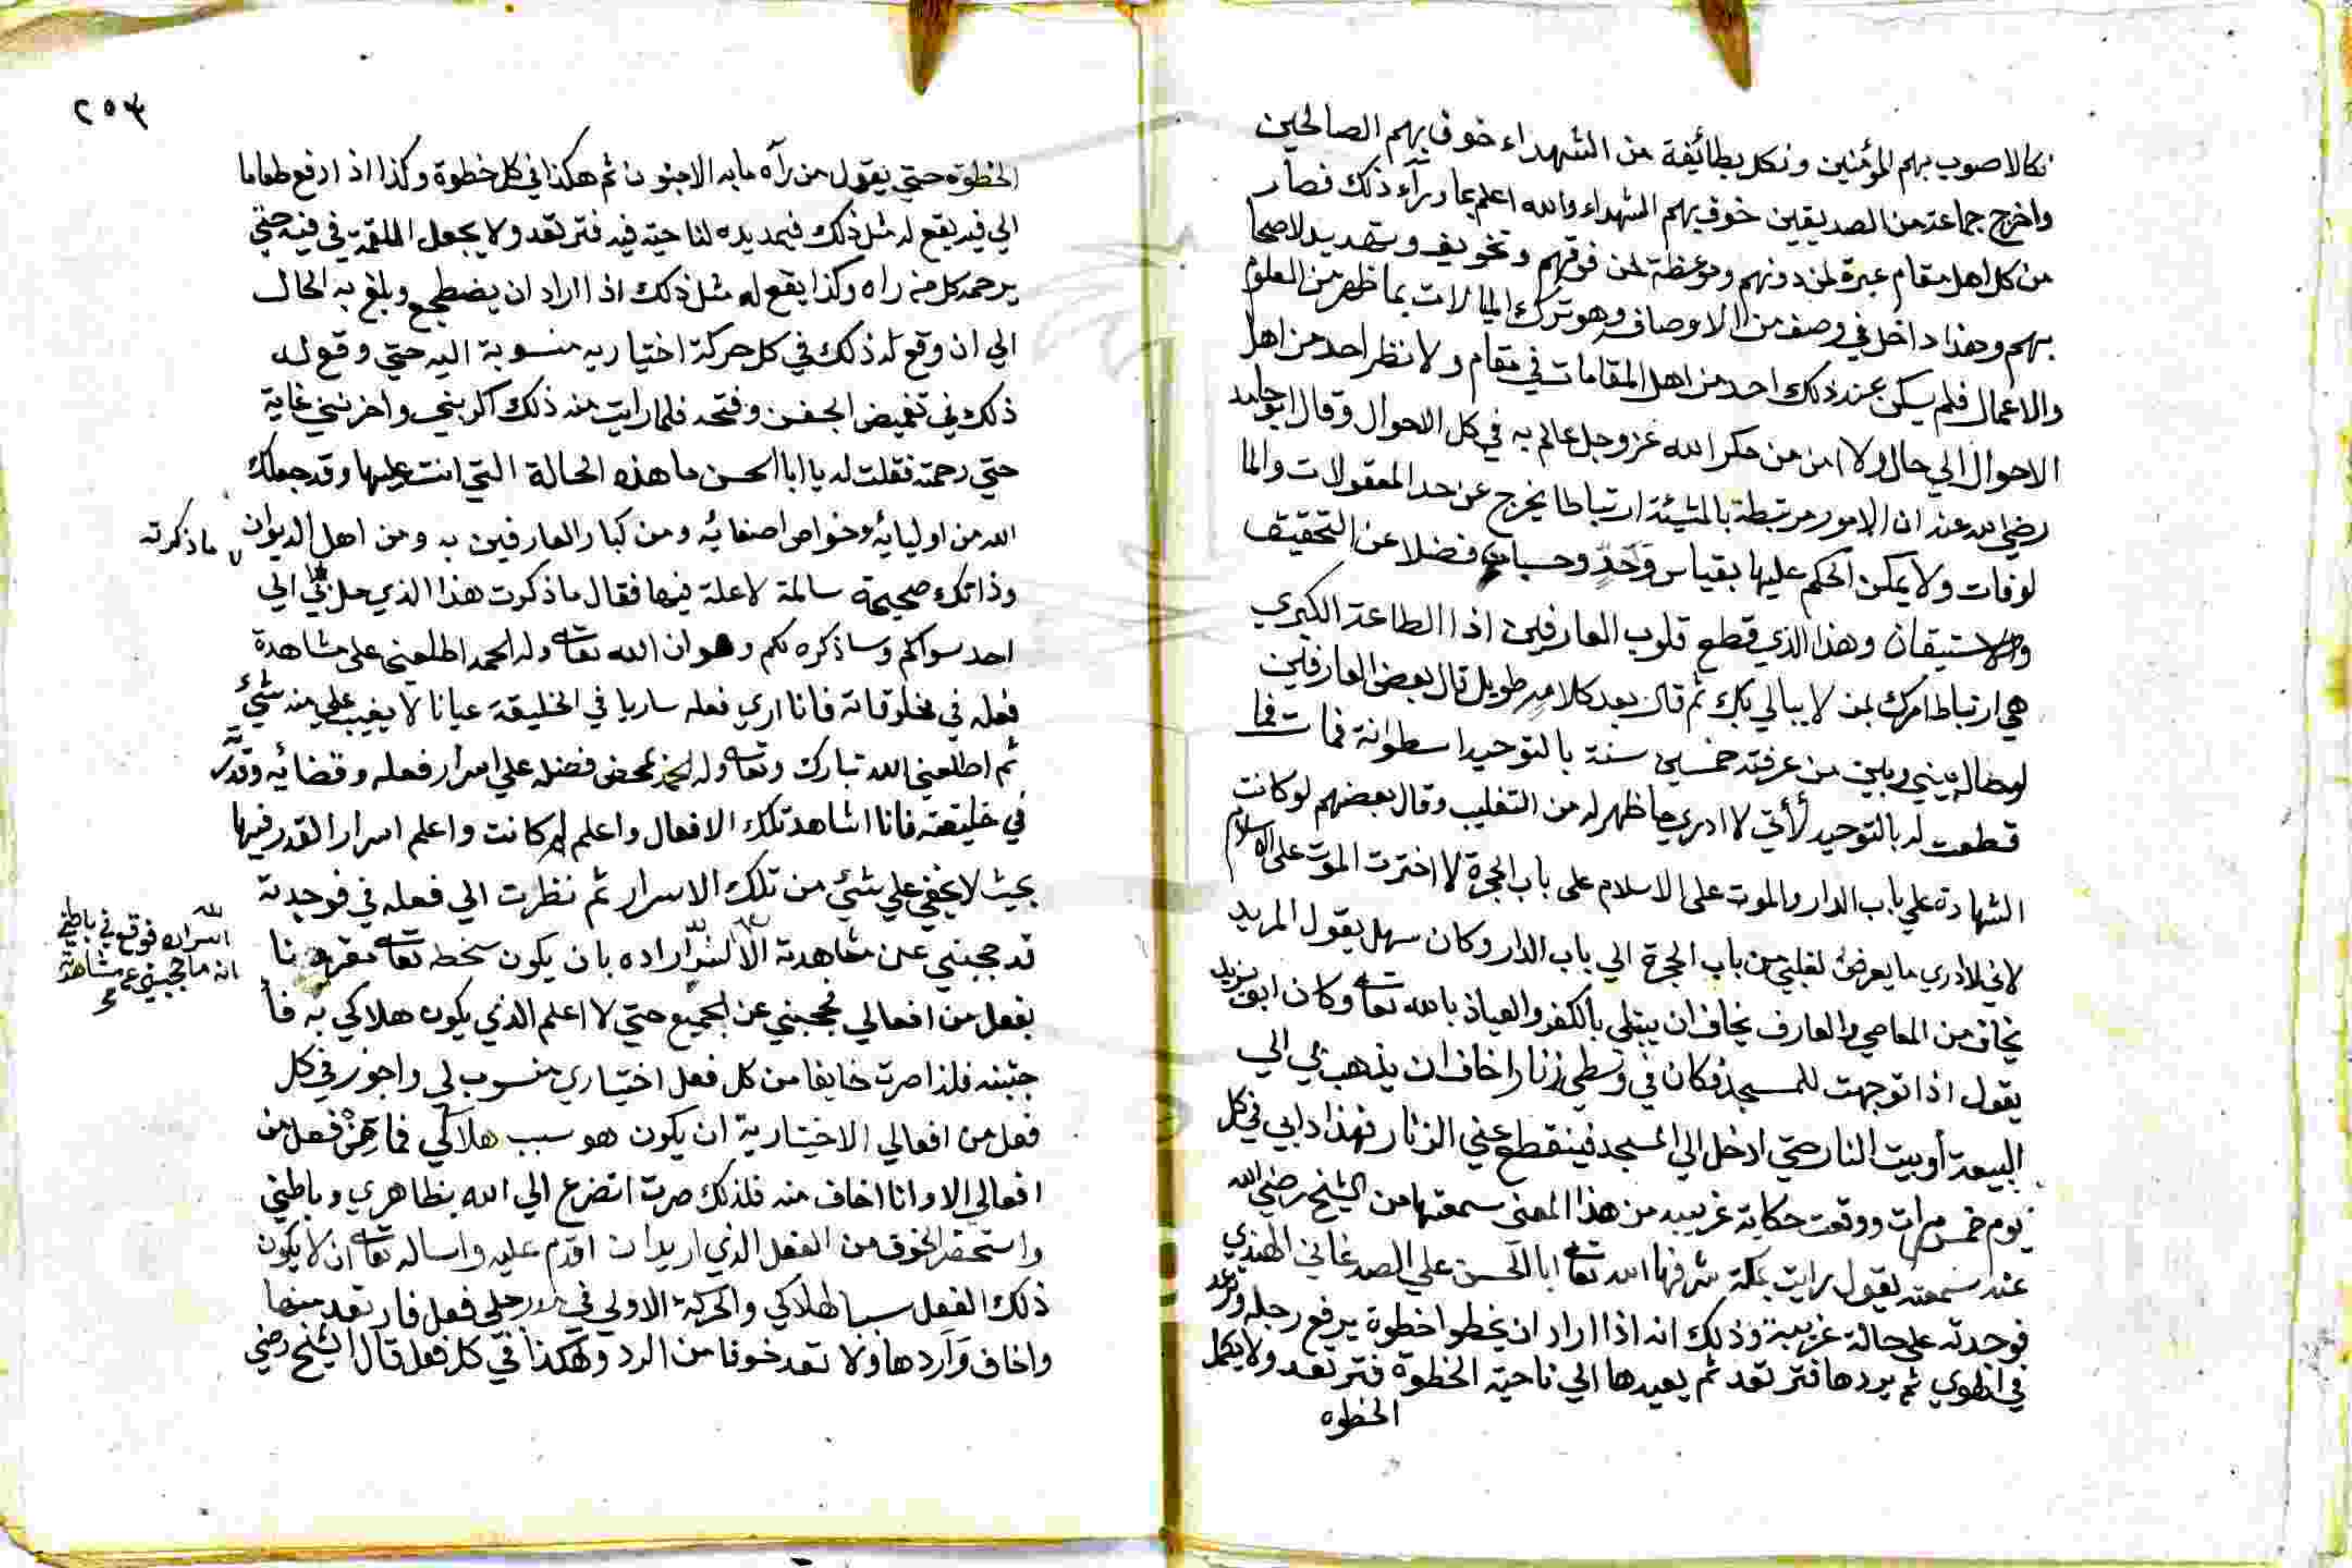 نكالا صوب بهم المؤمنين ونكل بطائفة من الشهداء خوف بهم الصالحين
واخرج جماعة من الصديقين خوف بهم الشهداء والله اعلم بما ورآء ذلك فصار
من كل اهل مقام عبرة لمن دونهم وموعظة لمن فوقهم وتخويف وتهديد لاصحا
بهم وهذا داخل في وصف من الاوصاف وهو ترك المبالات بما ظهر من العلوم
والاعمال فلم يسكن عند ذلك احد من اهل المقامات في مقام ولا نظر احد من اهل
الاحوال الي حال ولا امن من مكر الله عز وجل عالم به في كل الاحوال وقال ابو حامد
رضي الله عنه ان الامور مرتبطة بالمشيئة ارتباطا يخرج عن حد المعقولات والما
لوفات ولا يمكن الحكم عليها بقياس وحد وحسبان فضلا عن التحقيق
والاستيقان وهذا الذي قطع قلوب العارفين اذ الطاعة الكبري
هي ارتباط امرك بمن لا يبالي بك ثم قال بعد كلام طويل قال بعض العارفين
لو حال بيني وبين من عرفته خمسين سنة بالتوحيد اسطوانة فمات فما
قطعت له بالتوحيد لأني لا ادري ما ظهر له من التقليب وقال بعضهم لو كانت
الشهادة علي باب الدار والموت على الاسلام على باب الحجرة لاخترت الموت على الاسلام
لاني لا ادري ما يعرض لقلبي من باب الحجرة الي باب الدار وكان سهل يقول المريد
يخاف من المعاصي والعارف يخاف ان يبتلى بالكفر والعياذ بالله تعا وكان ابو يزيد
يقول اذا توجهت للمسجد فكان في وسطي زنارا اخاف ان يذهب بي الي
البيعة أو بيت النار حتي ادخل الي المسجد فينقطع عني الزنار فهذا دابي في كل
يوم خمس مرات ووقعت حكاية غريبه من هذا المعنى سمعتها من الشيخ رضي الله
عنه سمعته يقول رايت بمكة شرفها الله تعا ابا الحسن علي الصدغاني الهندي
فوجدته على حالة غريبة وذلك انه اذا اراد ان يخطو اخطوة يرفع رجله وترعد
في الخطوي ثم يردها فترتعد ثم يعيدها الي ناحية الخطوة فترتعد ولا يكمل
الخطوه
٢٥٣
الخطوه حتي يقول من رآه ما به الا جنون ثم هكذا في كل خطوة وكذا اذا رفع طعاما
الي فيه يقع له مثل ذلك فيمد يده لناحية فيه فترتعد ولا يجعل اللقمة في فيه حتي
يرحمه كل من راه وكذا يقع له مثل ذلك اذا اراد ان يضطجع وبلغ به الحال
الي ان وقع له ذلك في كل حركة اختياريه منسوبة اليه حتي وقع له
ذلك في تغميض الجفن وفتحه فلما رايت منه ذلك اكربني واحزنني غاية
حتي رحمته فقلت له يا ابا الحسن ما هذه الحالة التي انت عليها وقد جعلك
الله من اوليائه وخواص اصفيائه ومن كبار العارفين به ومن اهل الديوان
ما ذكرته
وذاتك صحيحة سالمة لا علة فيها فقال ما ذكرت هذا الذي حل بي الي
احد سواكم وساذكره لكم وهو ان الله تعا وله الحمد اطلعني على مشاهدة
فعله في مخلوقاته فانا اري فعله ساريا في الخليقة عيانا لا يغيب علي منه شيئ
ثم اطلعني الله تبارك وتعا وله الحمد بمحض فضله علي اسرار فعله وقضائه وقدره
في خليقته فانا اشاهد تلك الافعال واعلم لم كانت واعلم اسرار القدر فيها
بحيث لا يخفي علي شيئ من تلك الاسرار ثم نظرت الي فعله في فوجدته
قد حجبني عن مشاهدة الا لشر اراده بان يكون سخط تعا مقرونا
الله اسراره فوقع في باطني
انه ما حجبني عن مشاهدة
بفعل من افعالي فحجبني عن الجميع حتي لا اعلم الذي يكون هلاكي به فأ
جتنبه فلذا صرت خايفا من كل فعل اختياري منسوب لي واجوز في كل
فعل من افعالي الاختيارية ان يكون هو سبب هلاكي فما من فعل من
افعالي الا وانا اخاف منه فلذلك صرت اتضرع الي الله بظاهري وباطني
واستحضر الخوف من الفعل الذي اريد ان اقدم عليه واساله تعا ان لا يكون
ذلك الفعل سببا لهلاكي والحركة الاولي في رجلي فعل فارتعد منها
واخاف وآردها ولا تعد خوفا من الرد وهكذا في كل فعل قال الشيخ رضي